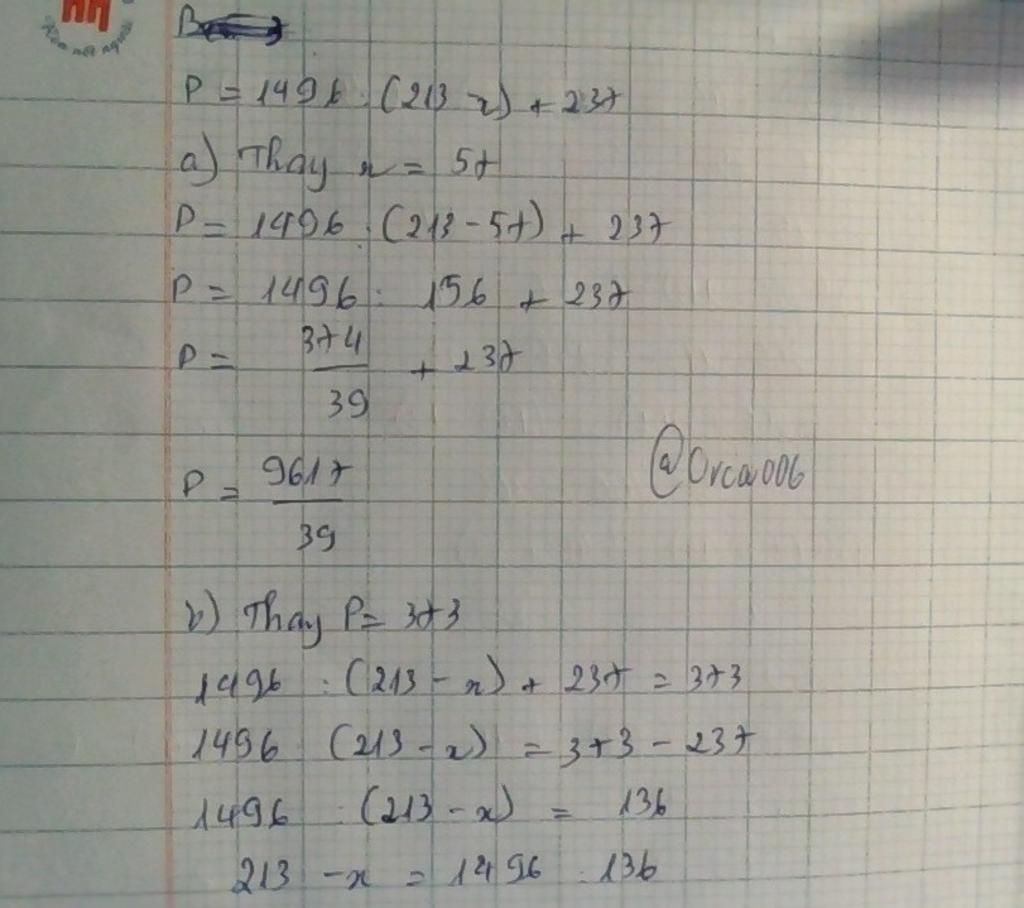 P = 1496 : (213 - x) + 237
a) Thay x = 57
P = 1496 : (213 - 57) + 237
P = 1496 : 156 + 237
P = 374/39 + 237
@Orca006
P = 9617/39
b) Thay P = 373
1496 : (213 - x) + 237 = 373
1496 (213 - x) = 373 - 237
1496 : (213 - x) = 136
213 - x = 1496 : 136